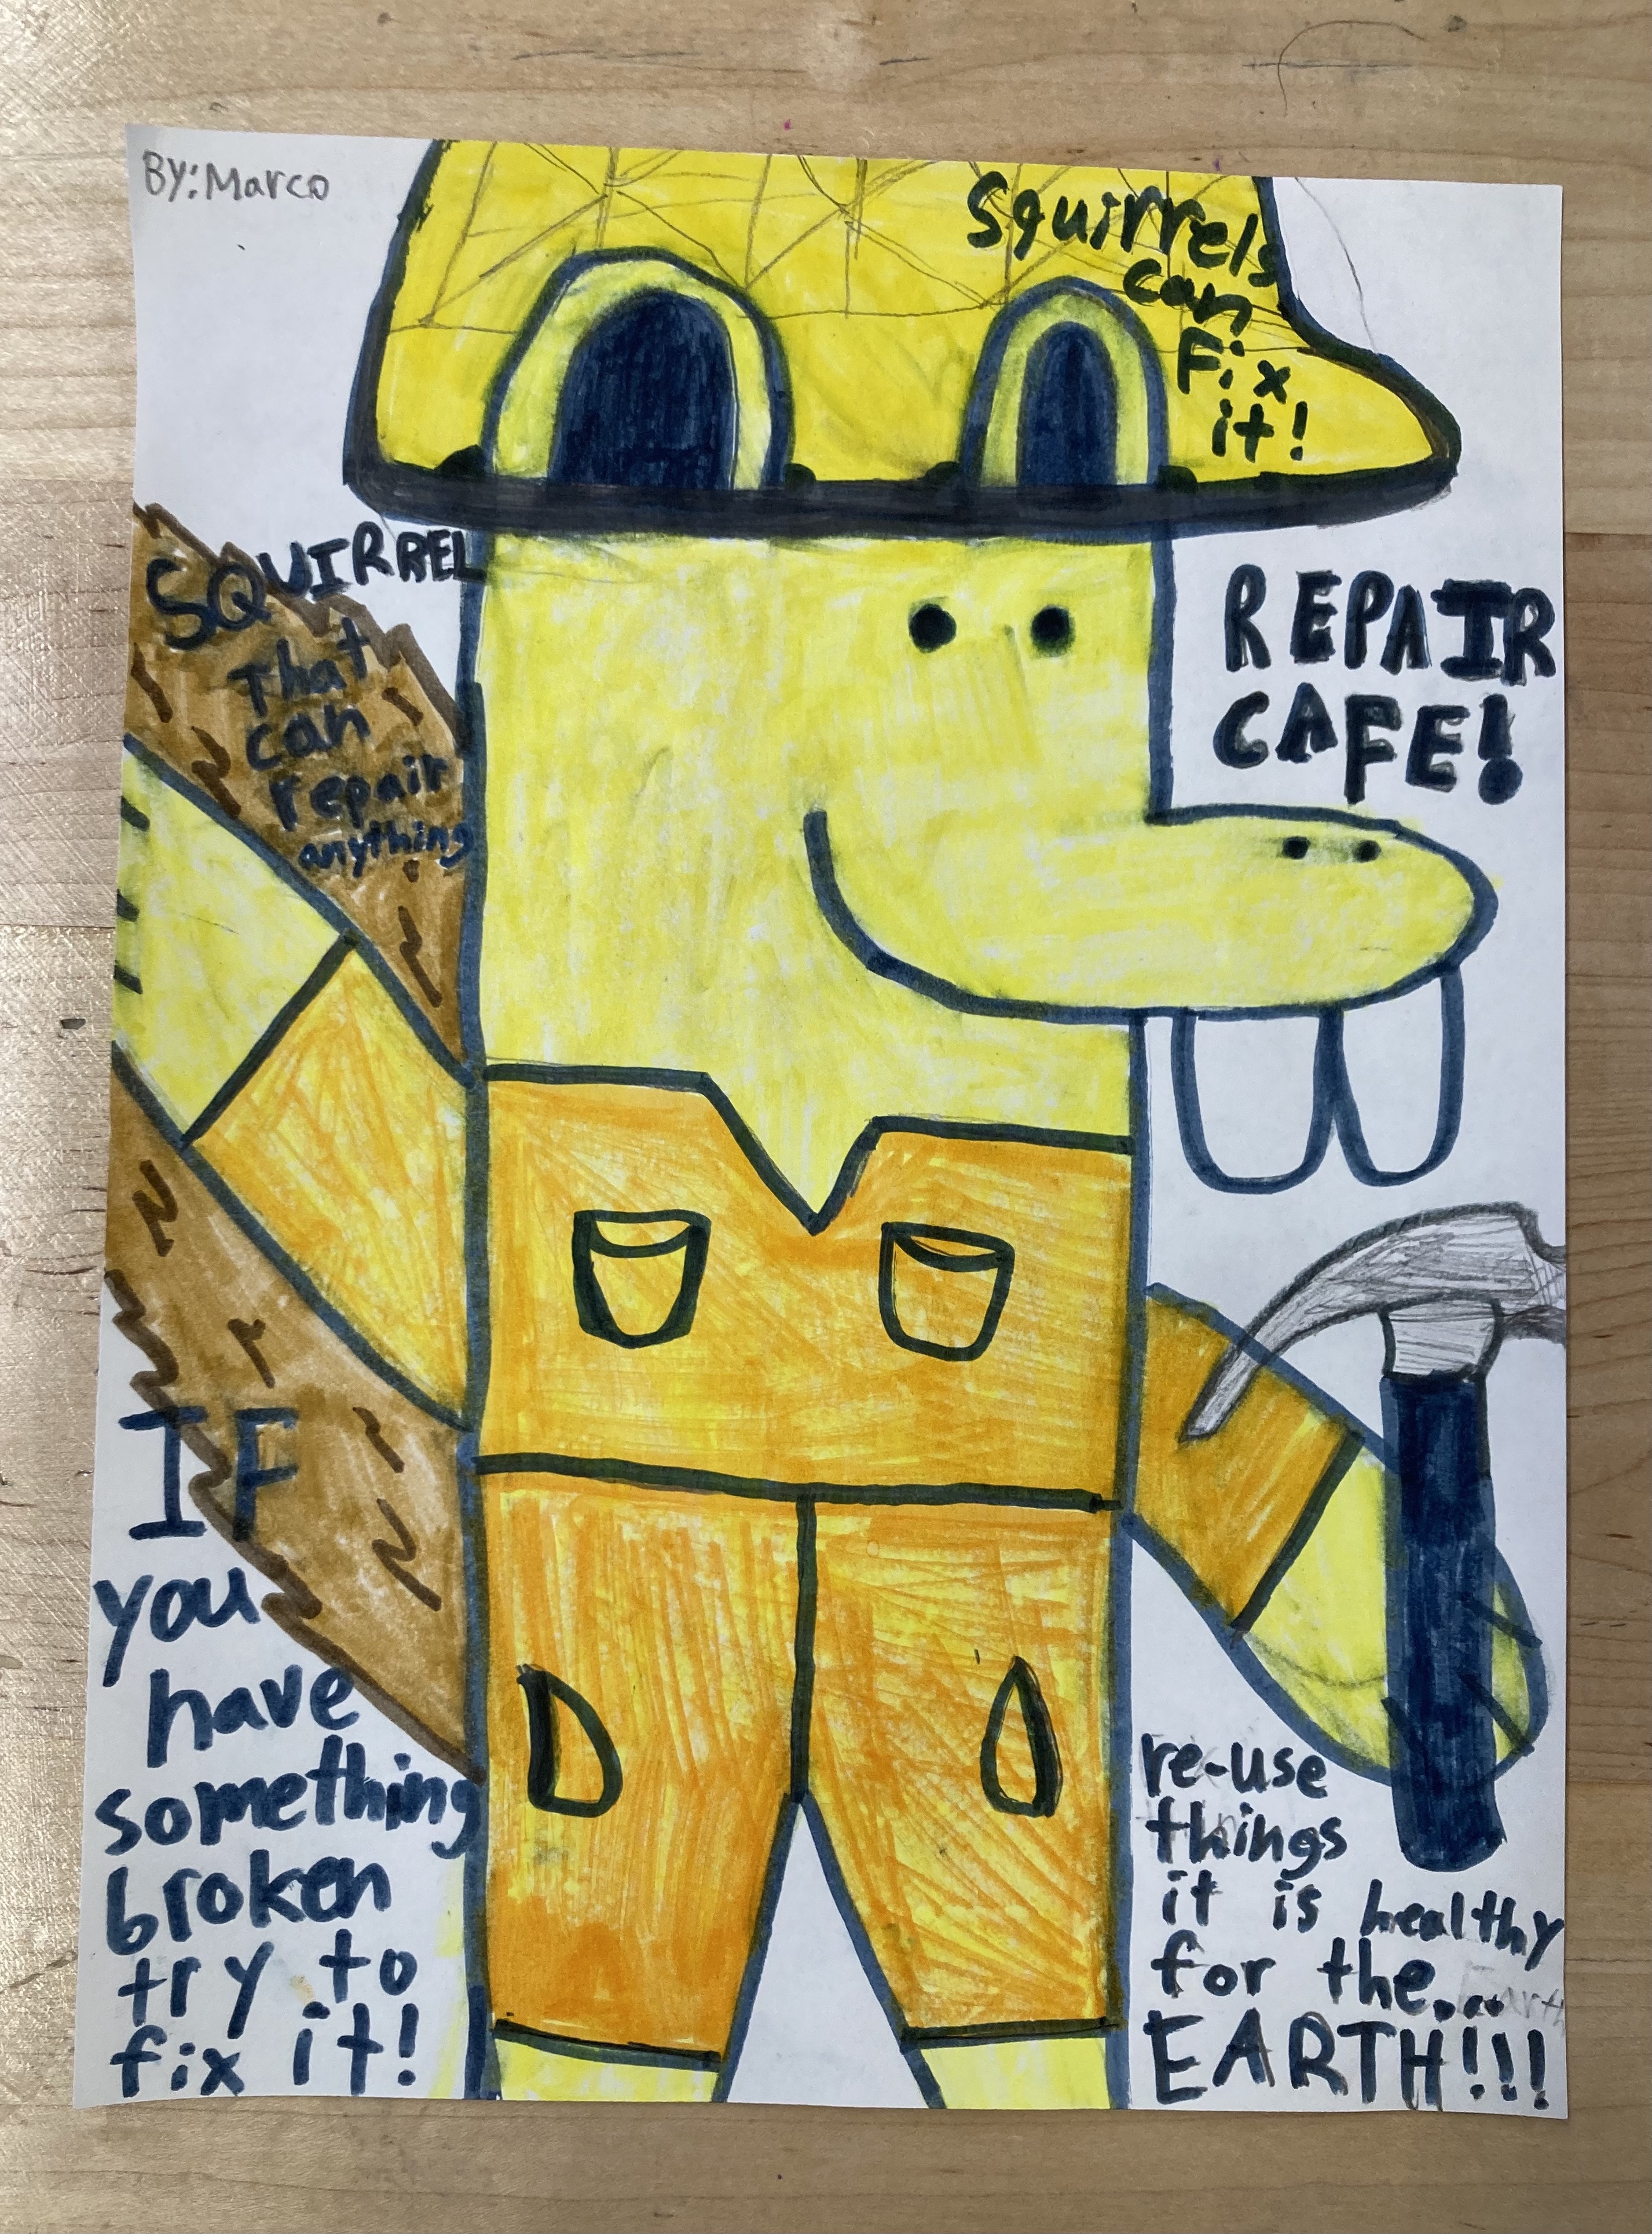 BY: Marco
Squirrels
can
Fix
it!
SQUIRREL
That
can
repair
anything
REPAIR
CAFE!
IF
you
have
something
broken
try to
fix it!
re-use
things
it is healthy
for the... Earth
EARTH!!!